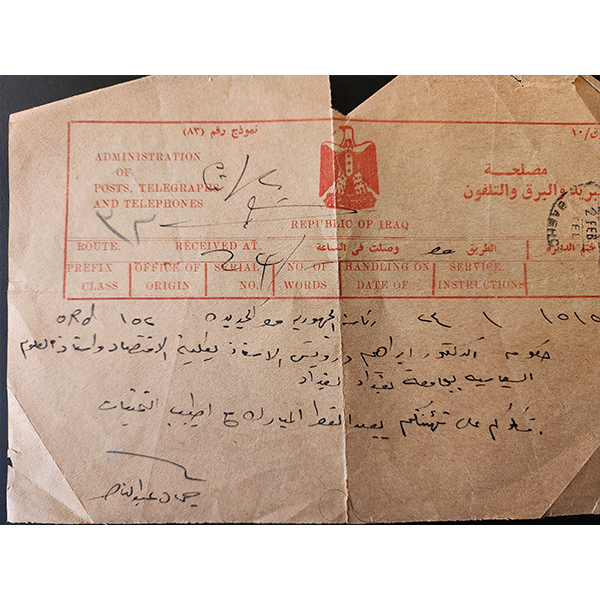 نموذج رقم (٨٣)
ق/١٠
ADMINISTRATION
OF
POSTS, TELEGRAPHS
AND TELEPHONES
مصلحة
البريد والبرق والتلفون
REPUBLIC OF IRAQ
ROUTE.
RECEIVED AT.
وصلت في الساعة
الطريق
ختم الدائرة
2 FEB
PREFIX
CLASS
OFFICE OF
ORIGIN
SERIAL
NO.
NO. OF
WORDS
HANDLING ON
DATE OF
SERVICE.
INSTRUCTIONS
ORd ١٥٢ رئاسة الجمهورية مصر الجديدة ٢٤ ١ ١٥١٥
الدكتور ابراهيم درويش الاستاذ بكلية الاقتصاد واستاذ العلوم
السياسية بجامعة بغداد بغداد
نشكركم على تهنئتكم بعيد الفطر المبارك مع اطيب التمنيات
جمال عبد الناصر